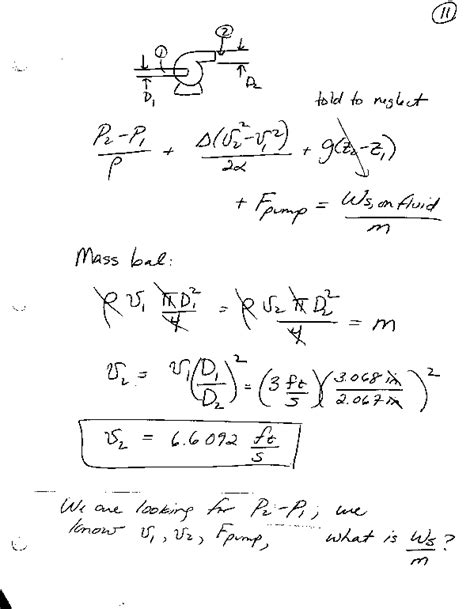 11
① ②
D₁ D₂
told to neglect
P₂-P₁/ρ + Δ(v₂²-v₁²)/2α + g(z₂-z₁)
+ Fpump = Ws, on fluid/m
Mass bal:
ρ v₁ πD₁²/4 = ρ v₂ πD₂²/4 = m
v₂ = v₁(D₁/D₂)² = (3 ft/s)(3.068 in/2.067 in)²
v₂ = 6.6092 ft/s
We are looking for P₂-P₁, we
know v₁, v₂, Fpump, what is Ws/m?